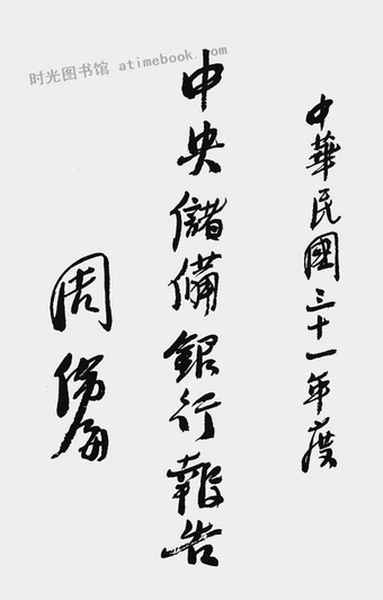 时光图书馆 atimebook.com
中華民國三十一年度
中央儲備銀行報告
周佛海